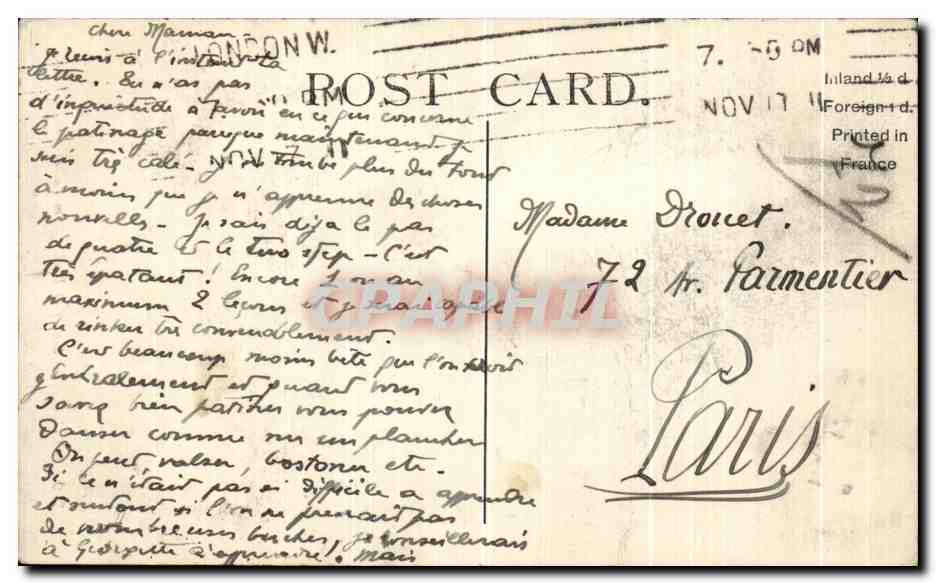 Chère Maman -
Je reçois à l'instant ta
lettre. Tu n'as pas
d'inquiétude à avoir en ce qui concerne
le patinage parce que maintenant je
suis très calé - je ne tombe plus du tout
à moins que je n'apprenne des choses
nouvelles - Je sais déjà le pas
de quatre et le two step - C'est
très épatant! Encore 1 ou au
maximum 2 leçons et je serai capable
de rinker très convenablement.
C'est beaucoup moins bête que l'on croit
généralement et quand vous
savez bien patiner vous pouvez
danser comme sur un plancher
On peut valser, bostonner etc -
Si ce n'était pas si difficile à apprendre
et surtout si l'on ne prenait pas
de nombreuses bûches, je conseillerais
à Georgette d'apprendre! Mais
LONDON W.
PM
NOV 17 11
7. PM
NOV 17 11
POST CARD.
Inland ½ d
Foreign 1 d.
Printed in
France
Madame Drouet.
72 Av. Parmentier
Paris
CPAPHIL